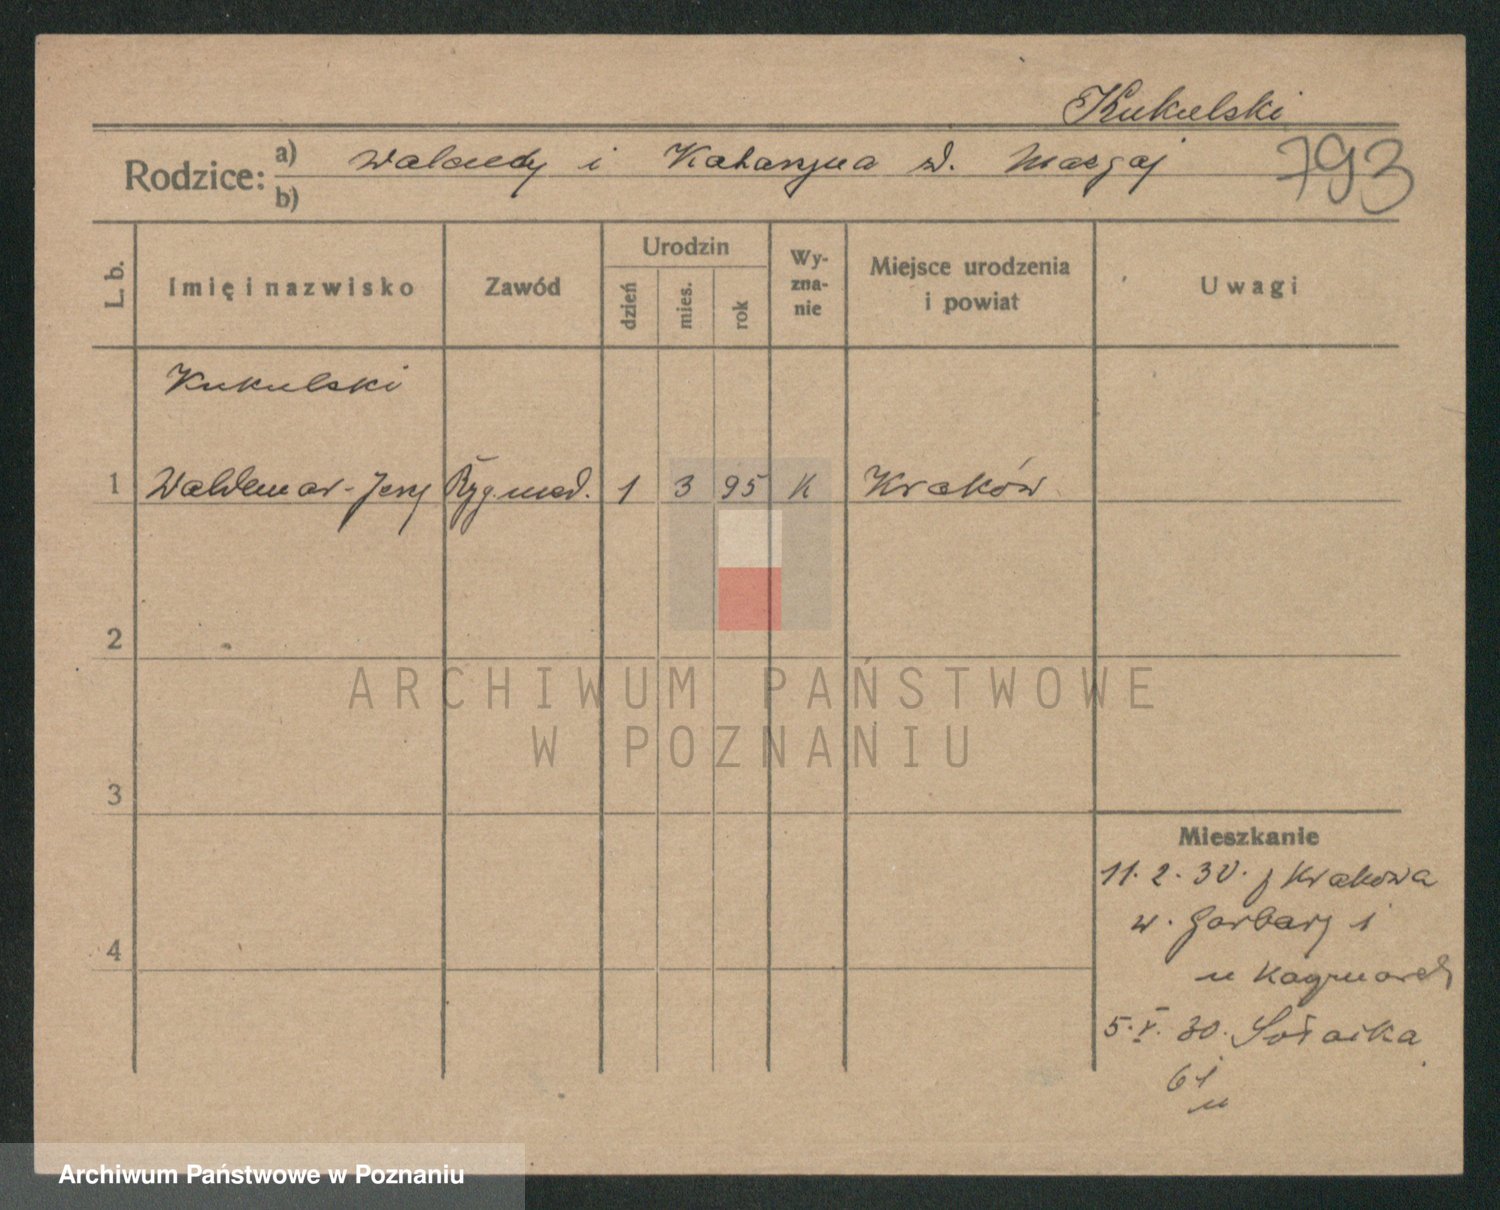 Kukulski
Rodzice: a) Walenty i Katarzyna d. Maczaj
b)
793
L. b. Imię i nazwisko Zawód Urodzin dzień mies. rok Wy-zna-nie Miejsce urodzenia i powiat Uwagi
Kukulski
1 Waldemar-Jerzy med. 1 3 95 K Kraków
2
3
4
Mieszkanie
11. 2. 30. z Krakowa
w. Garbary 1
u Kaczmarek
5. V. 30. Sołacka
61
u
ARCHIWUM PAŃSTWOWE
W POZNANIU
Archiwum Państwowe w Poznaniu